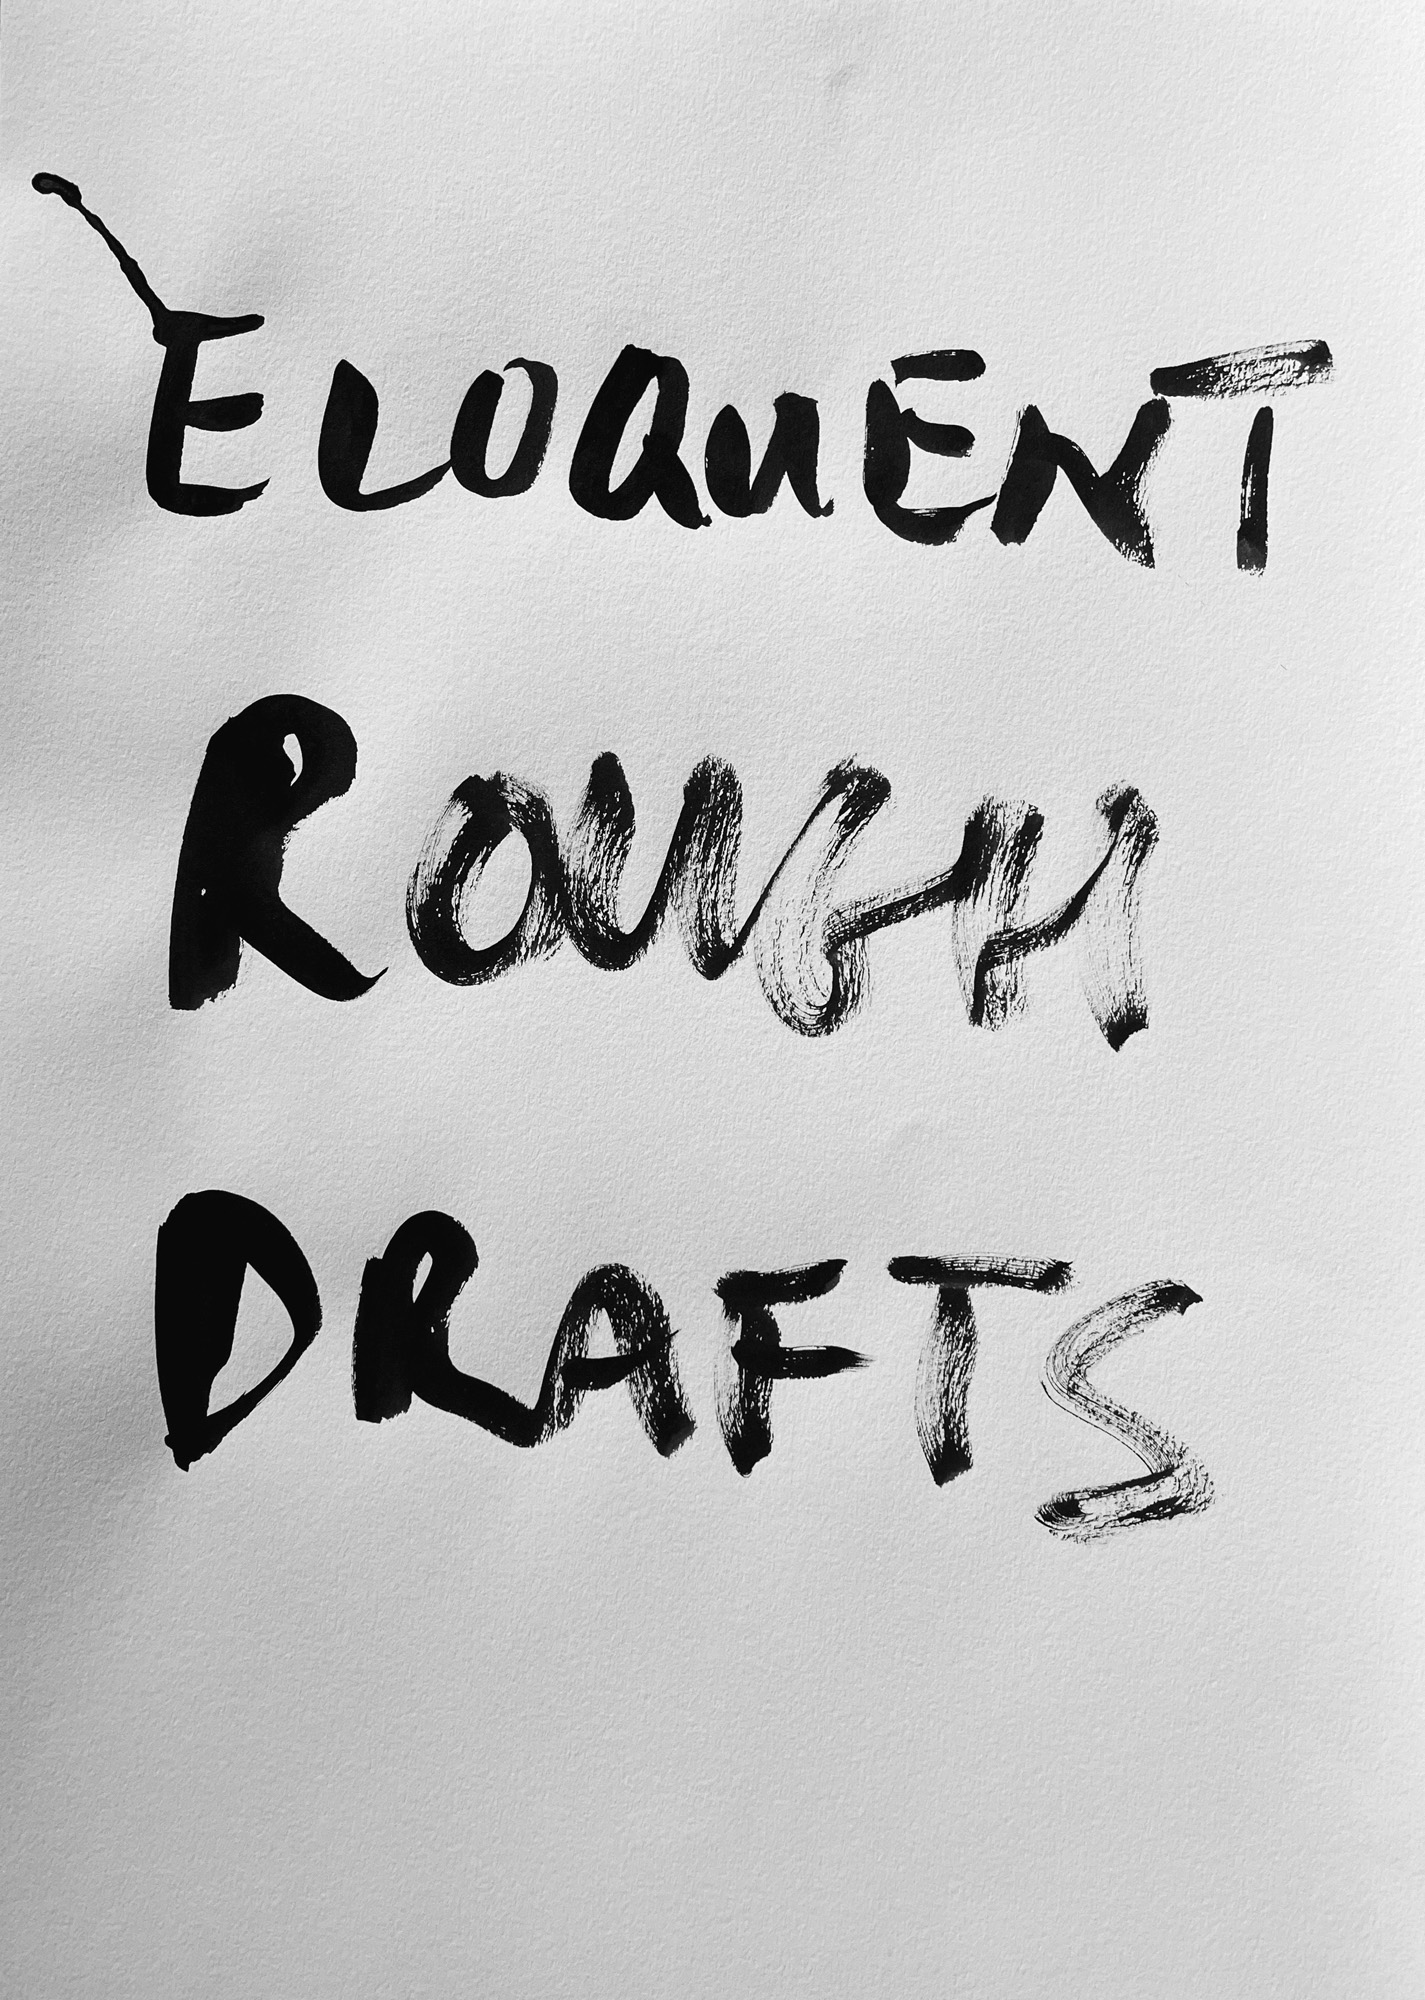 ELOQUENT
ROUGH
DRAFTS